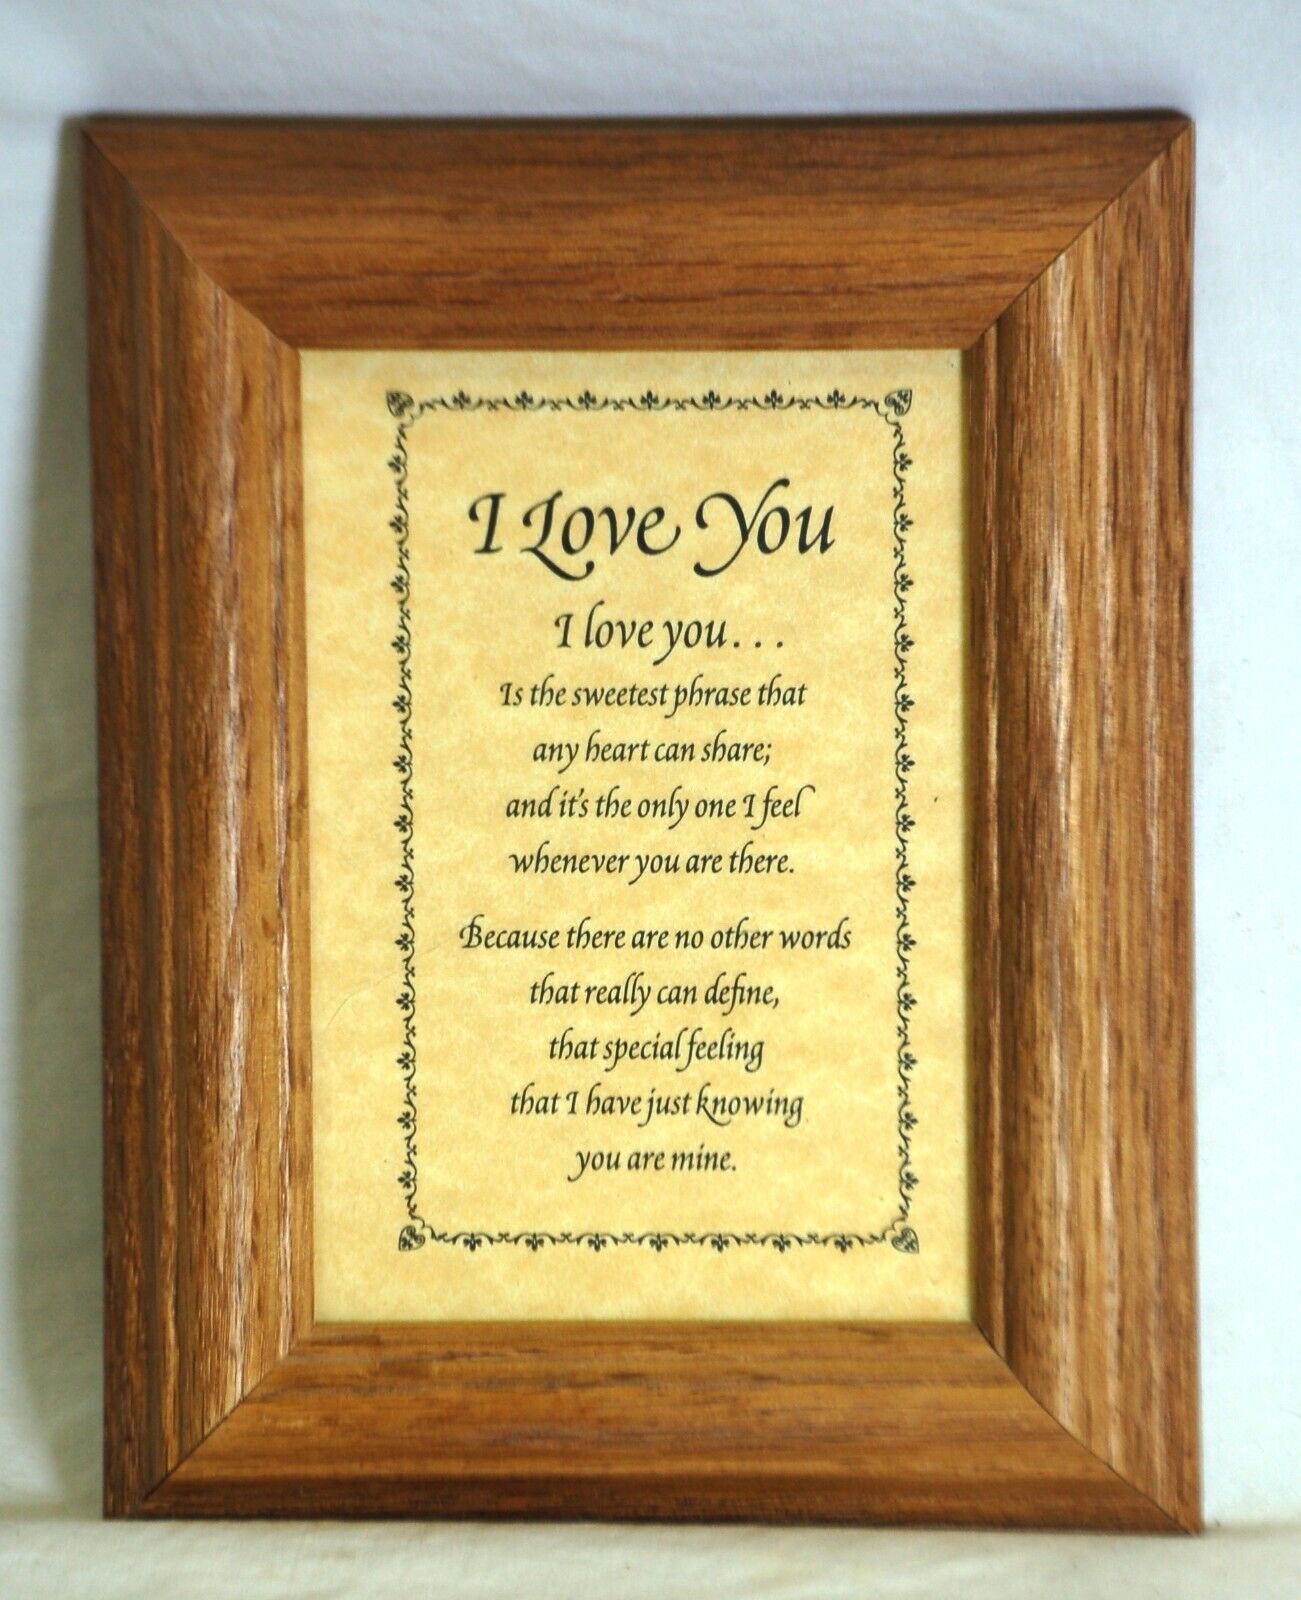 I Love You
I love you...
Is the sweetest phrase that
any heart can share;
and it's the only one I feel
whenever you are there.
Because there are no other words
that really can define,
that special feeling
that I have just knowing
you are mine.